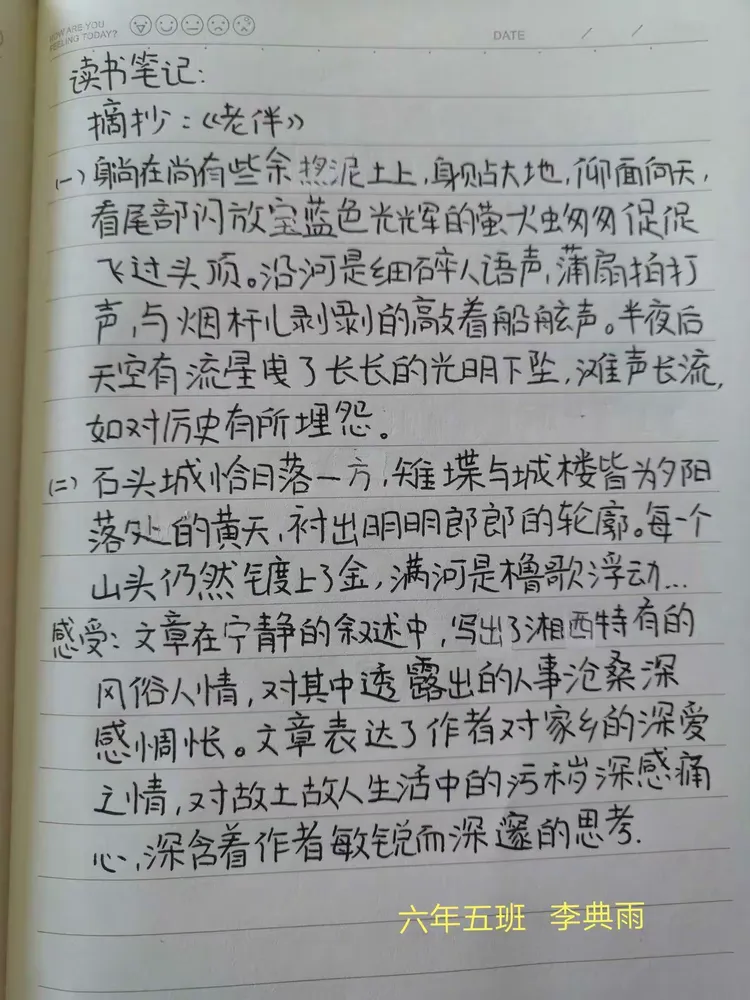 HOW ARE YOU
FEELING TODAY?
DATE / /
读书笔记:
摘抄:《老伴》
(一)躺在尚有些余热泥土上,身贴大地,仰面向天,
看尾部闪放宝蓝色光光辉的萤火虫匆匆促促
飞过头顶。沿河是细碎人语声,蒲扇拍打
声,与烟杆儿剥剥的敲着船舷声。半夜后
天空有流星曳了长长的光明下坠,滩声长流,
如对历史有所埋怨。
(二)石头城恰月落一方,雉堞与城楼皆为夕阳
落处的黄天,衬出明明郎郎的轮廓。每一个
山头仍然镀上了金,满河是橹歌浮动…
感受:文章在宁静的叙述中,写出了湘西特有的
风俗人情,对其中透露出的人事沧桑深
感惆怅。文章表达了作者对家乡的深爱
之情,对故土故人生活中的污秽深感痛
心,深含着作者敏锐而深邃的思考.
六年五班 李典雨